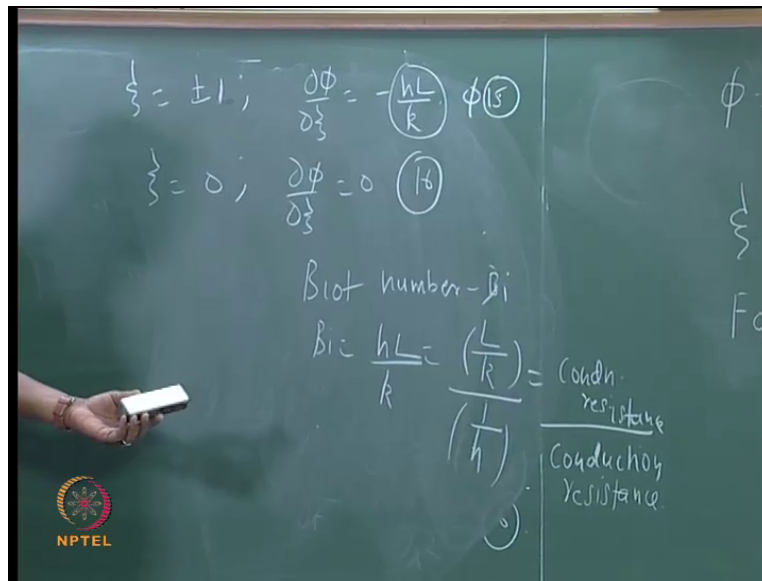 ξ = ±1 ; ∂φ/∂ξ = - hL/k φ 15
ξ = 0 ; ∂φ/∂ξ = 0 16
Biot number - Bi
Bi = hL/k = (L/k)/(1/h) = Condn. resistance / Conduction resistance
φ
ξ
Fo
NPTEL